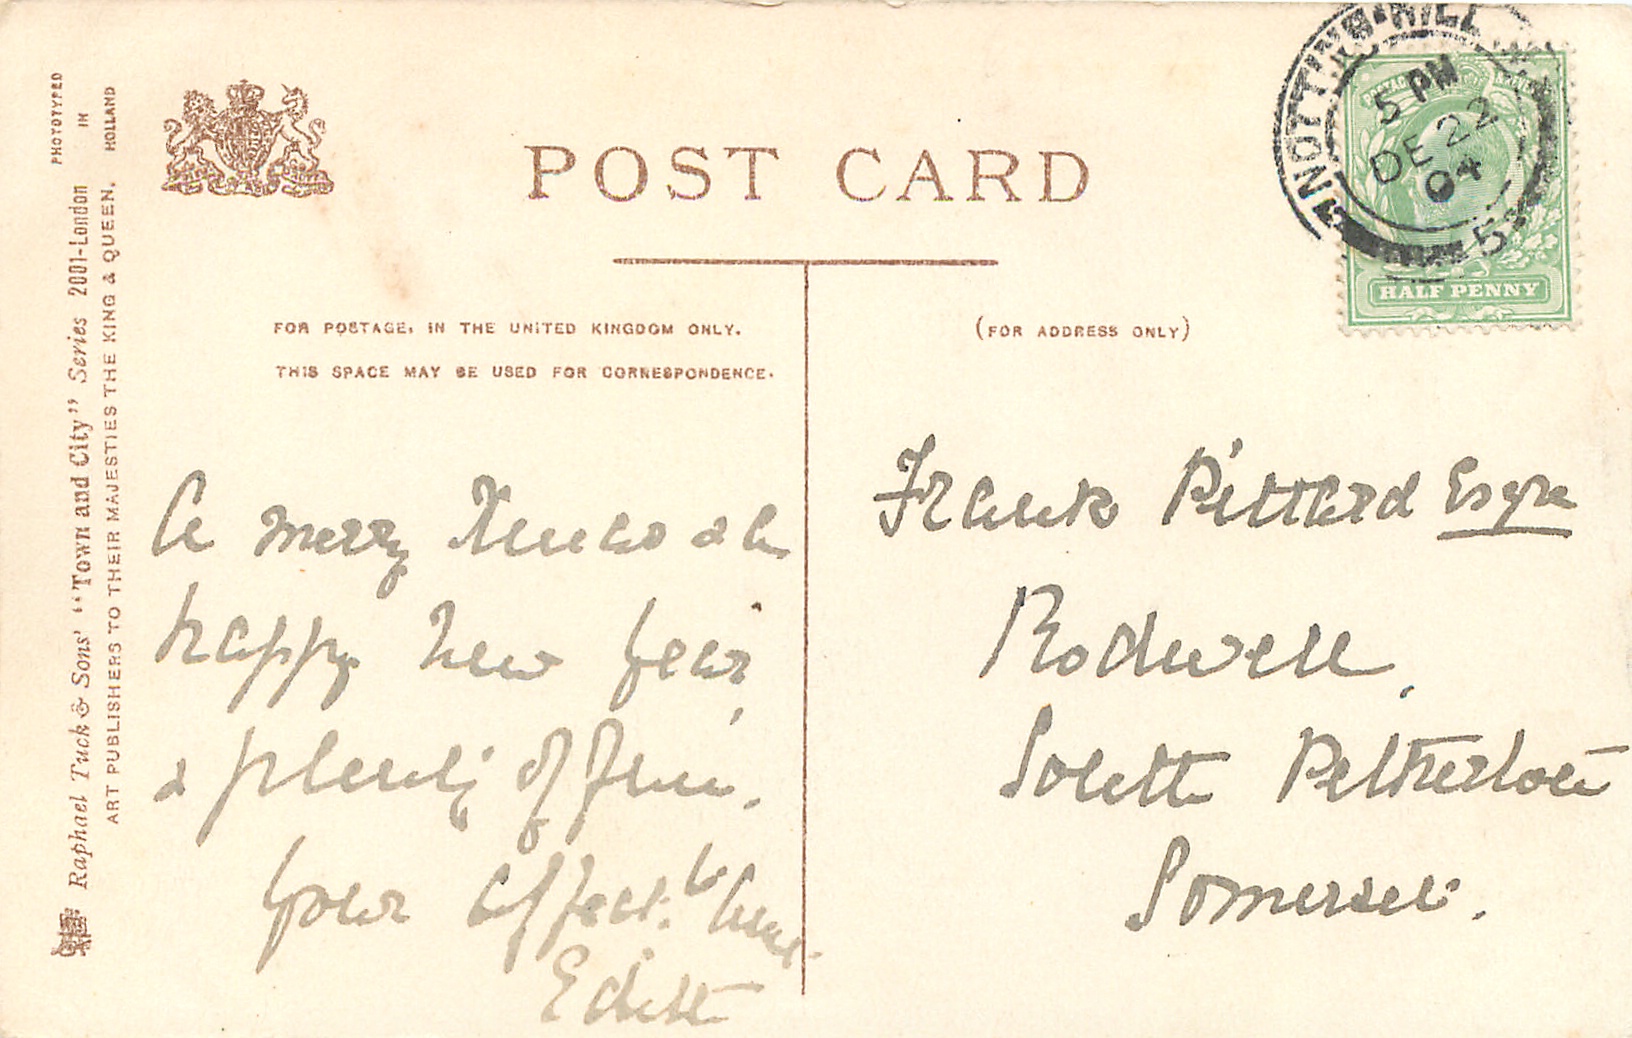 POST CARD
FOR POSTAGE, IN THE UNITED KINGDOM ONLY.
THIS SPACE MAY BE USED FOR CORRESPONDENCE.
(FOR ADDRESS ONLY)
NOTTING·HILL
5 PM
DE 22
04
5
HALF PENNY
PHOTOTYPED IN HOLLAND
Raphael Tuck & Sons' "Town and City" Series 2001-London
ART PUBLISHERS TO THEIR MAJESTIES THE KING & QUEEN.
A merry Xmas & a
happy New Year,
& plenty of fun.
Your affect:
Edith
Frank Pittard Esqre
Rodwell,
South Petherton
Somerset.